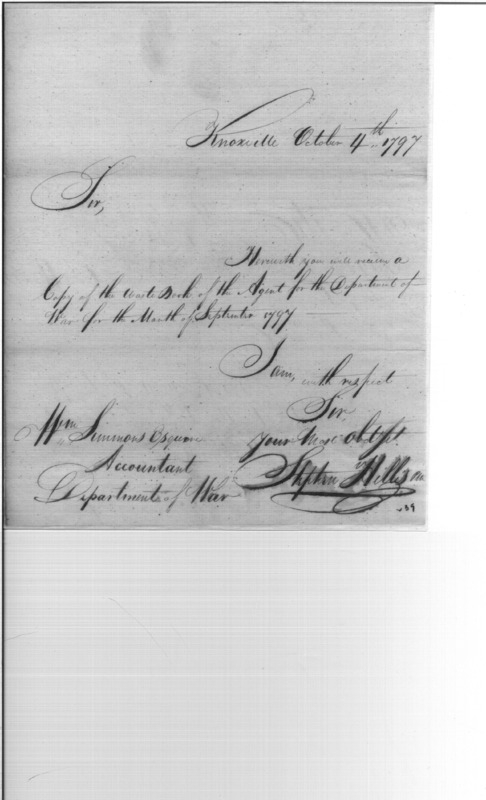 Knoxville October 4th 1797
Sir,
Herewith you will receive a
Copy of the Waste Book of the Agent for the Department of
War for the Month of September 1797
I am, with respect
Sir,
Wm Simmons Esquire
Your Most obt st.
Accountant
Stephen Hillis
Department of War